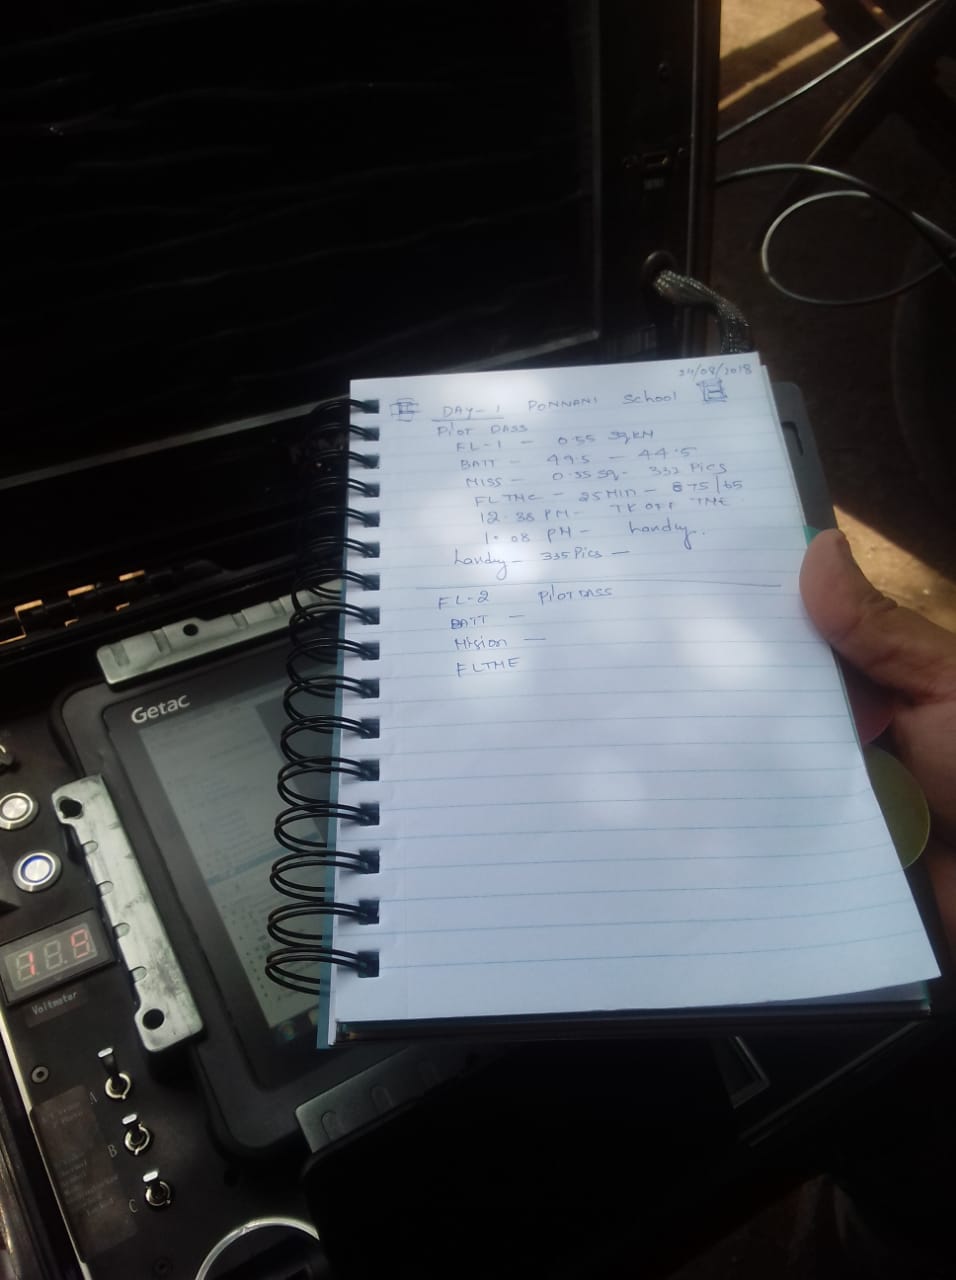 24/08/2018
DAY-1 PONNANI School
Pilot DASS
FL-1 - 0.55 SqKM
BATT - 49.5 - 44.5
MISS - 0.35 Sq- 333 Pics
FLTME - 25 MIN - 75/65
12.38 PM- TK OFF TME
1.08 PM -
335 Pics -
FL-2 Pilot DASS
BATT -
Mision -
FLTME
Getac
Voltmeter
A
B
C